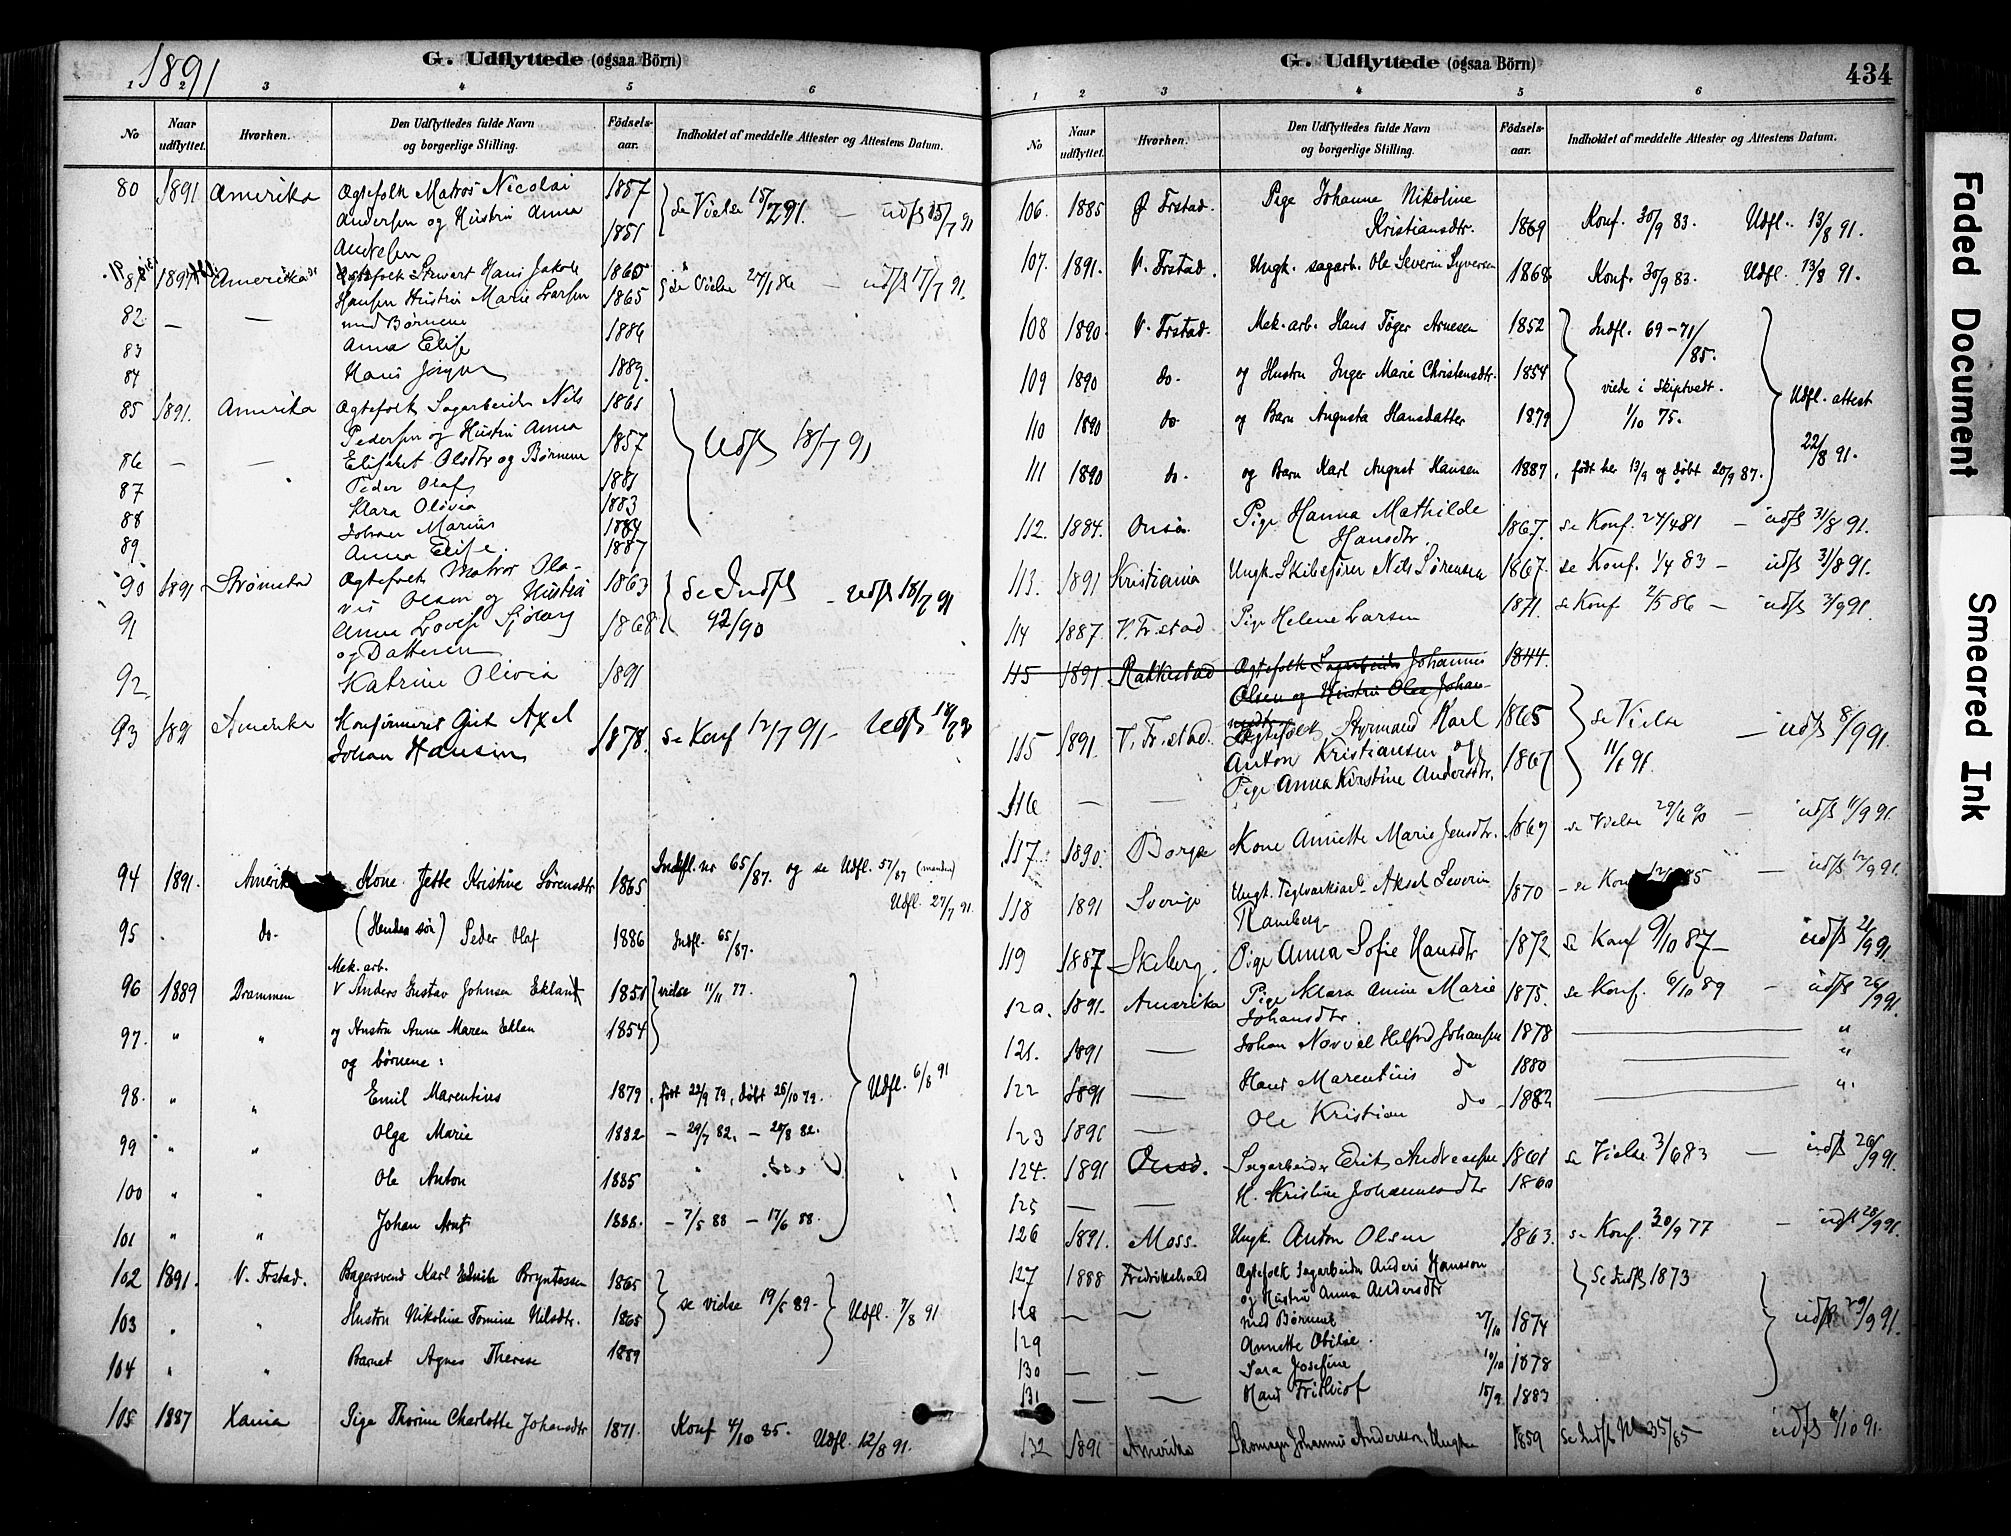 1891
G. Udflyttede (ogsaa Börn)
1 2 3 4 5 6
No
Naar udflyttet.
Hvorhen.
Den Udflyttedes fulde Navn og borgerlige Stilling.
Födsels-aar.
Indholdet af meddelte Attester og Attestens Datum.
80 1891 Amerika Ægtefolk Matros Nicolai 1857
Andersen og Hustru Anna 1851 se Vielse 15/7 91. — udfl 15/7 91
Andersen
81 1891 Amerika Ægtefolk Stewart Hans Jakob 1865
Hansen Hustru Marie Larsen 1865 se Vielse 27/1 86 — udfl 17/7 91.
82 — — med Børnene
83 Anna Elise 1886
84 Hans Jørgen 1889.
85 1891. Amerika Ægtefolk Sagarbeider Nils 1861
Pedersen og Hustru Anna 1857 Udfl 18/7 91
86 — — Elisabet Olsdtr og Børnene
87 Peder Olaf 1881
88 Klara Olivia 1883
Johan Marius 1884
89. Anna Elise. 1887
90 1891 Strømstad Ægtefolk Matros Ola- 1863
vus Olsen og Hustru se Indfl — udfl 18/7 91
91 Anna Lovise Sjöberg 1868 92/90
og Datteren
92 Katrine Olivia 1891
93 1891 Amerika Konfirmeret Gut Axel
Johan Hansen 1878. se Konf 12/7 91 — Udfl 18/7 91
94 1891. Amerika Kone Jette Kristine Sørensdtr 1865 Indfl. nr 65/87. og se Udfl. 57/87 (manden)
Udfl. 27/7 91.
95 do. (Hendes søn) Peder Olaf 1886 Indfl. 65/87.
Mek. arb.
96 1889 Drammen Anders Gustav Johnsen Eklan 1851 vielse 11/11 77.
97. " " og Hustru Anna Maren Eklan 1854
og børnene:
98. " " Emil Marentius 1879, født 22/9 79, døbt 26/10 79. Udfl. 6/8 91
99 " " Olga Marie 1882 — 29/7 82. — 20/8 82.
100 " " Ole Anton 1885
101 " " Johan Arnt 1888. — 7/5 88 — 17/6 88.
102 1891. V. Frstad. Bagersvend Karl Edvin Bryntessen 1865
103 " " Hustru Nikoline Tomine Nilsdtr. 1865 se vielse 19/5 89 — Udfl. 7/8 91
104 " " Barnet Agnes Therese 1889
105 1887 Xania Pige Thorine Charlotte Johansdtr 1871. Konf 4/10 85. Udfl. 12/8 91.
G. Udflyttede (ogsaa Börn)
434
1 2 3 4 5 6
No
Naar udflyttet.
Hvorhen.
Den Udflyttedes fulde Navn og borgerlige Stilling.
Födsels-aar.
Indholdet af meddelte Attester og Attestens Datum.
106. 1885 Frstad. Pige Johanne Nikoline
Kristiansdtr. 1869 Konf. 30/9 83. Udfl. 13/8 91.
107. 1891. V. Frstad. Ungk. sagarb. Ole Severin Syversen 1868 Konf. 30/9 83. Udfl. 13/8 91.
108 1890. V. Frstad. Mek. arb. Hans Töger Arnesen 1852 Indfl. 69-71/85.
109 1890 do. og Hustru Inger Marie Christensdtr. 1854 viede i Skiptvedt. Udfl. attest
110 1890 do og Barn Augusta Hansdatter 1879 1/10 75. 22/8 91.
111 1890 do. og Barn Karl August Hansen 1887, født her 13/9 og døbt 20/9 87.
112. 1884. Onsø. Pige Hanna Mathilde
Hansdtr. 1867. se Konf. 24/4 81 — udfl 31/8 91.
113. 1891 Kristiania Ungk. Skibsfører Nils Sørensen 1867. se Konf. 1/4 83 — udfl 31/8 91.
114 1887. V. Fr.stad Pige Helene Larsen 1871. se Konf 2/5 86 — udfl 3/9 91.
115 1891 Rakkestad Ægtefolk Sagarbeider Johannes 1844.
Olsen og Hustru Olea Johan-
115 1891. V. Fr.stad. Ægtefolk Styrmand Karl 1865 se Vielse
Anton Kristiansen og 11/1 91. — udfl 8/9 91.
116 — — Pige Anna Kirstine Andersdtr. 1867
117. 1890. Borge Kone Annette Marie Jensdtr. 1867 se Vielse 29/6 90 — udfl 11/9 91.
118 1891 Sverige Ungk. Teglverksarb. Aksel Severin 1870 se Konf — udfl 12/9 91.
Ramberg
119 1887 Skeberg. Pige Anna Sofie Hansdtr 1872 se Konf 9/10 87 — udfl 21/9 91.
120. 1891. Amerika Pige Klara Amine Marie 1875. se Konf. 6/10 89 — udfl 26/9 91.
Johansdtr.
121. 1891 — Johan Helfred Johansen 1878 "
122 1891 — Hans Marentius do 1880 "
123 1891 — Ole Kristian do 1882 "
124. 1891 Onsø. Sagarbeider Erik Andreassen 1861 se Vielse 3/6 83 — udfl 26/9 91.
125 — — H. Kristine Johannesdtr 1860
126 1891. Moss. Ungk. Anton Olsen 1863. se Konf. 30/9 77 — udfl 28/9 91.
127 1888 Fredrikshald Ægtefolk Sagarbeider Anders Hansson se Indfl 1873
128 — — og Hustru Anna Andersdtr
med Børnene
129 Annette Otilie. 27/10 1874 udfl 29/9 91.
130 — — Sara Josefine 10/10 1878
131 — — Hans Frithiof 15/9 1883
132 1891 Amerika Skomager Johannes Andersson, Ungk. 1859 se Indfl N 35/85 udfl 6/10 91.
Faded Document
Smeared Ink